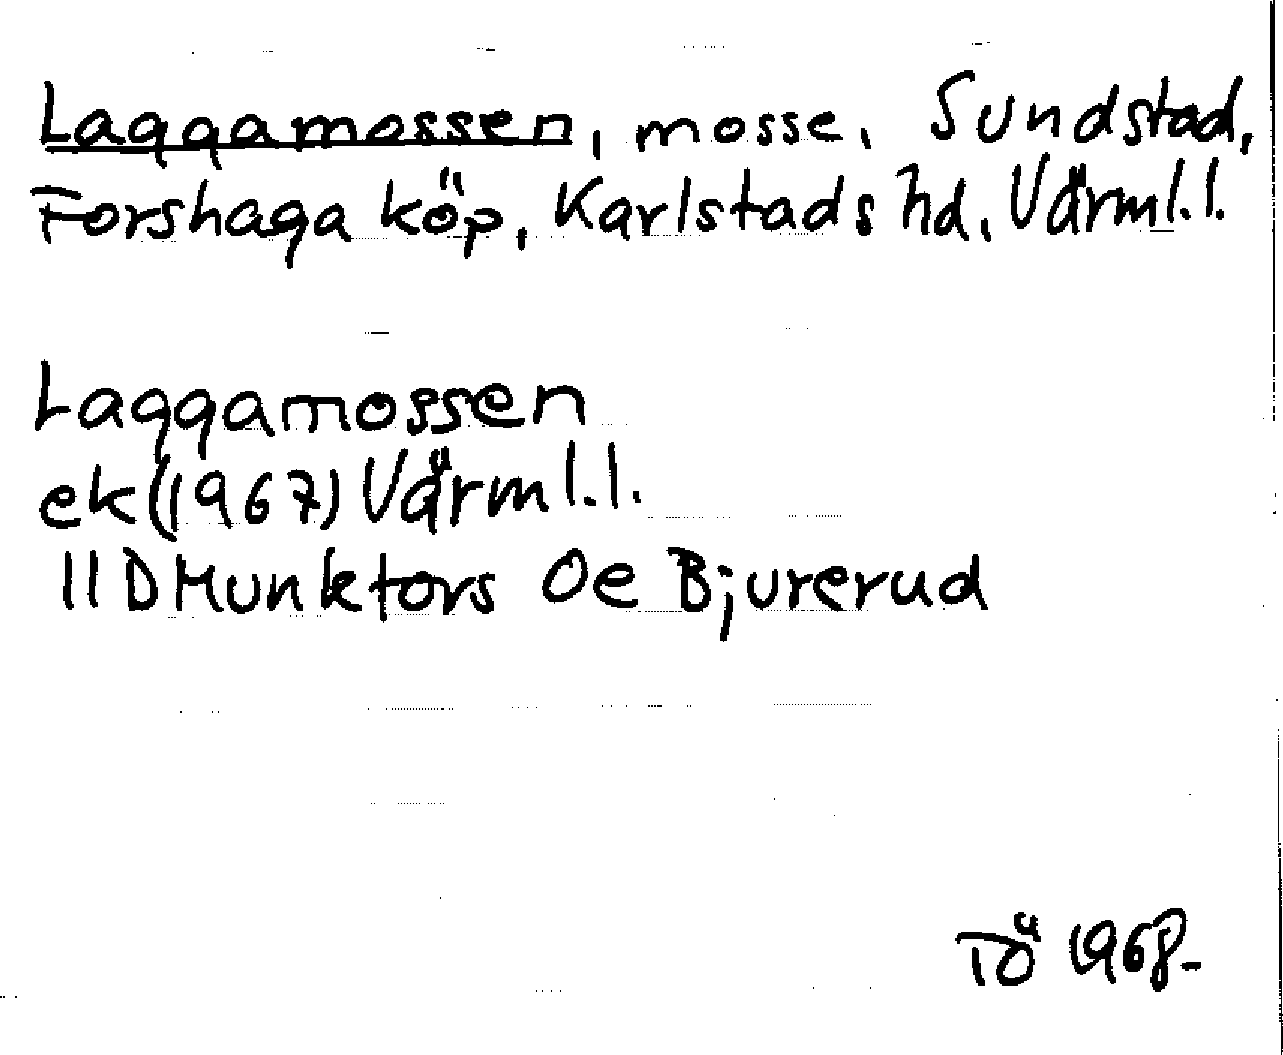 Laggamossen, mosse, Sundstad,
Forshaga köp, Karlstads hd, Värml.l.
Laggamossen
ek (1967) Värml.l.
11D Munkfors Oe Bjurerud
TÖ 1968.